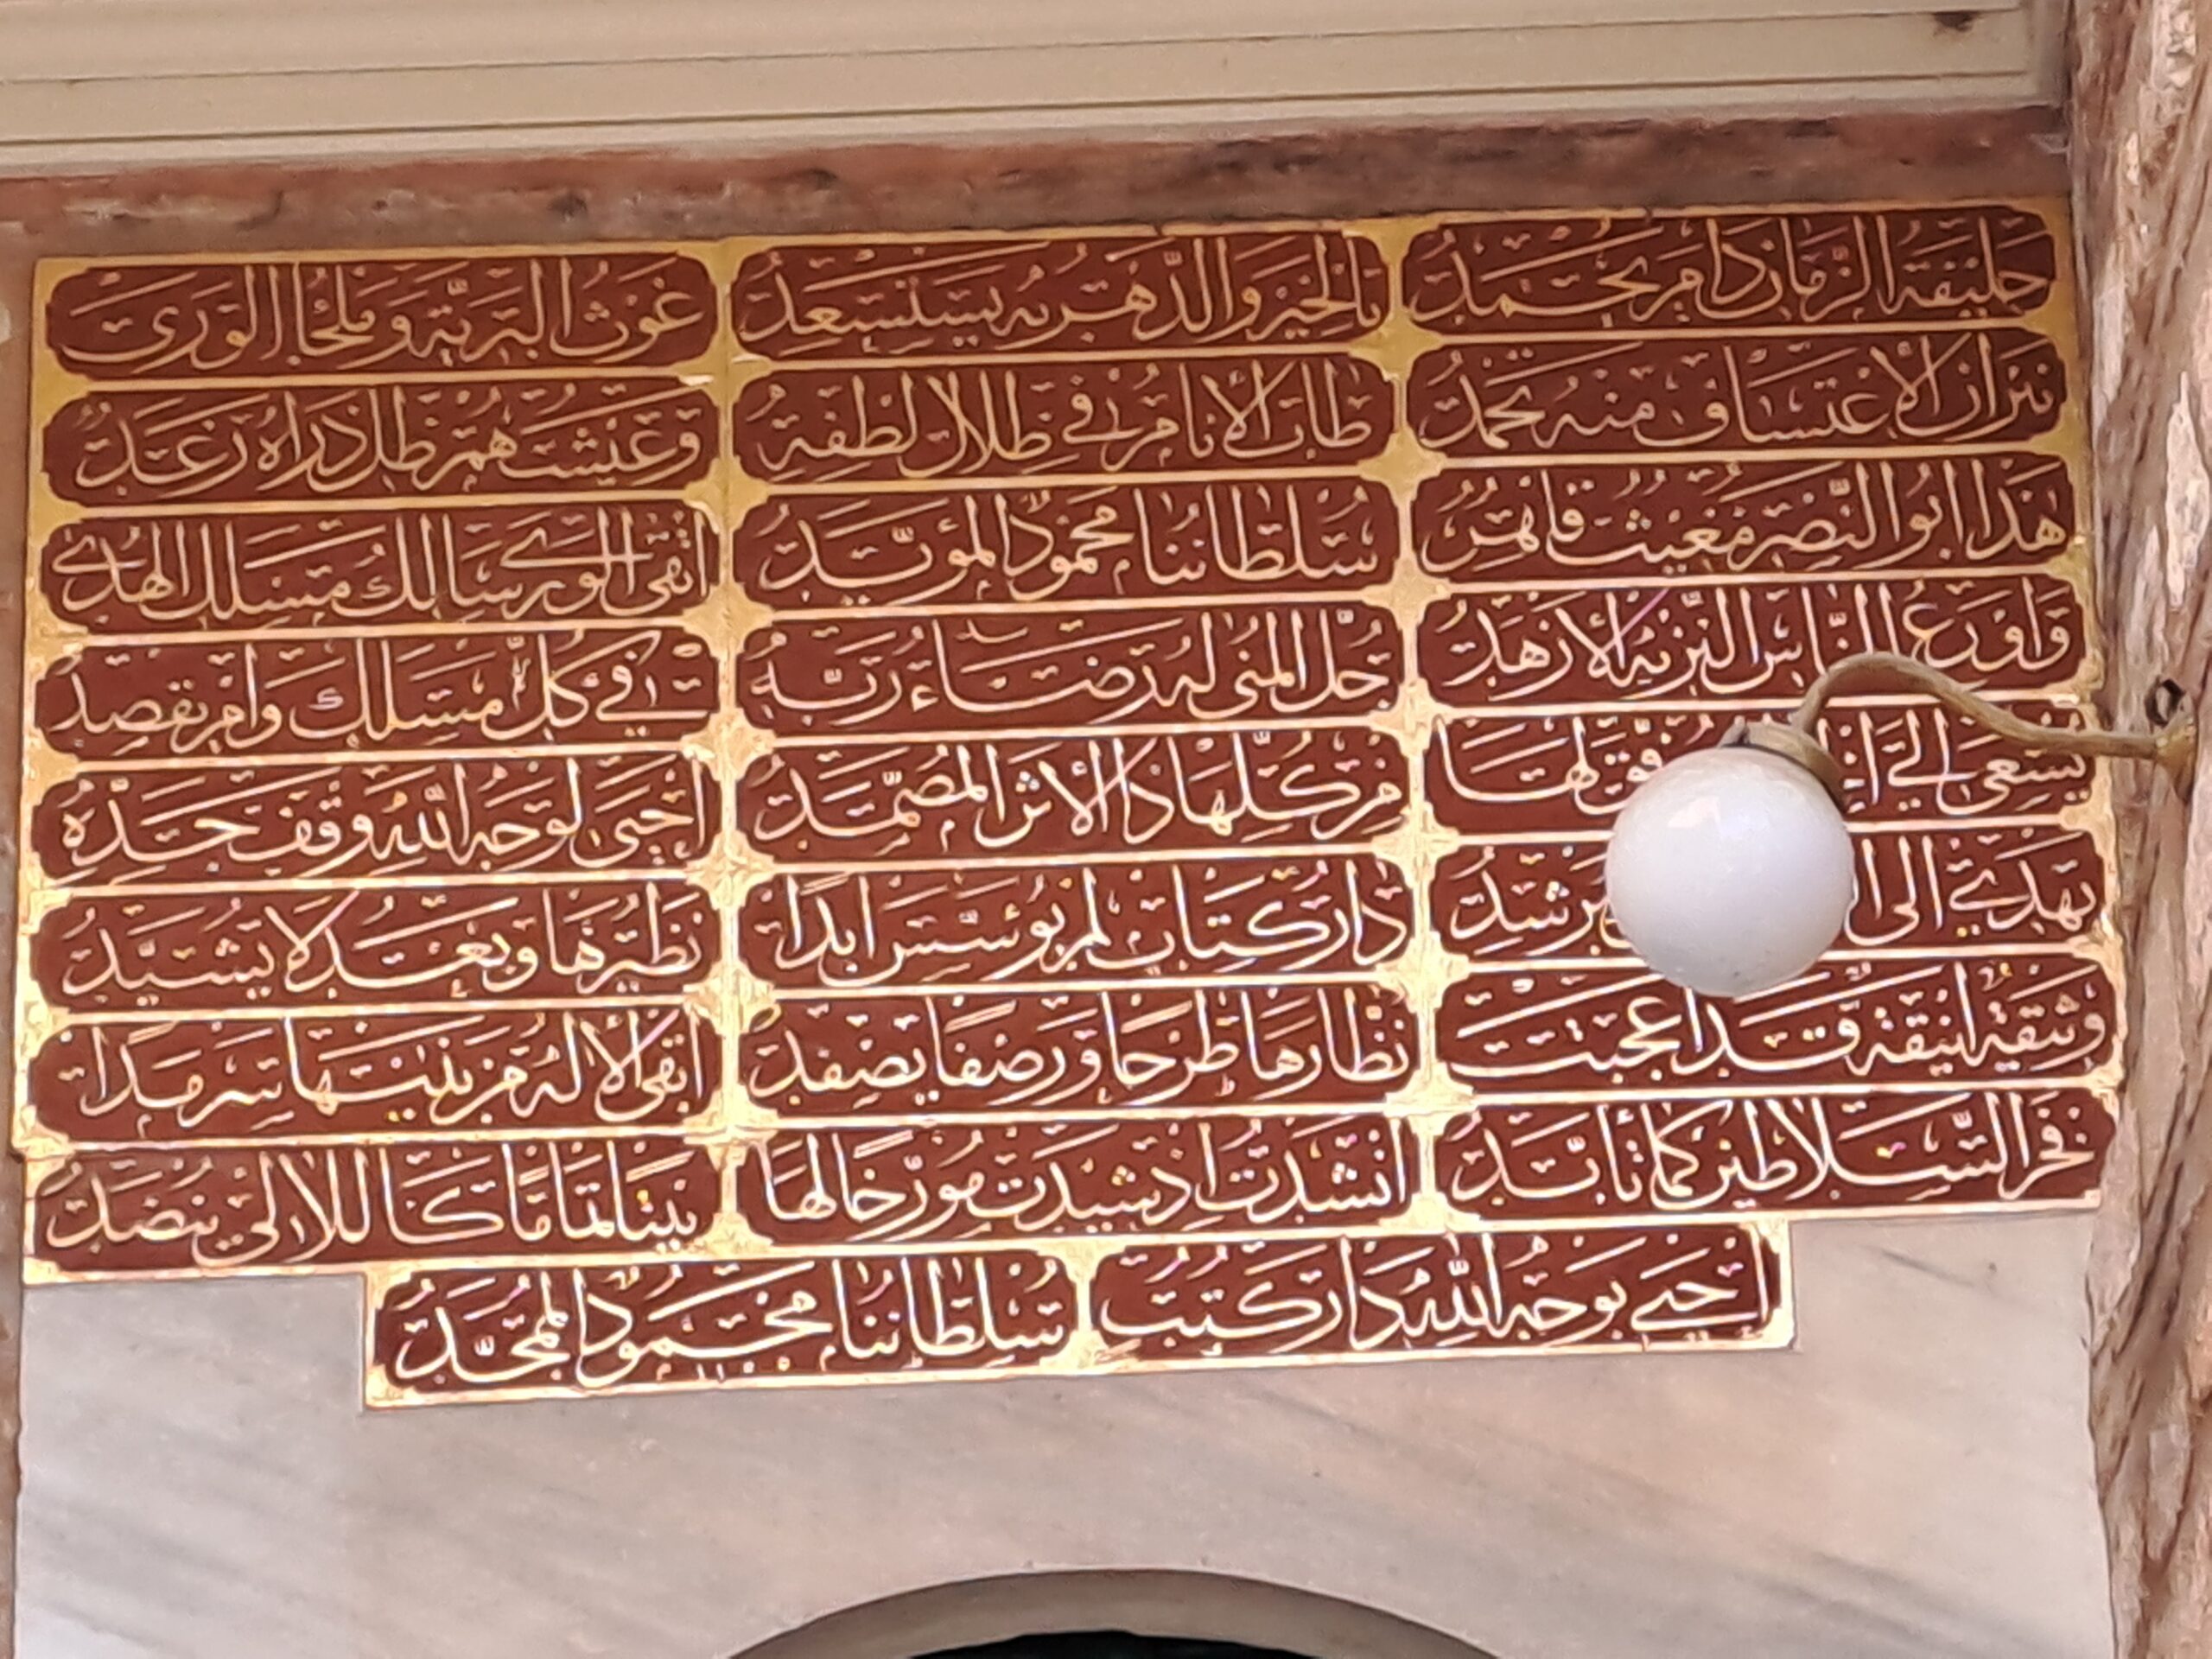 خليفة الزمان دام يحمد بالخير والدهر به يستسعد غوث البرية وملجأ الورى
نيران الاعتساف منه تخمد طاب الانام في ظلال لطفه وعيشتهم ظل ذراه رغد
هذا ابو النصر مغيث قاهر سلطاننا محمود المؤيد اتقى الورى سالك مسلك الهدى
واورع الناس النزيه الازهد جل المنى له رضاء ربه في كل مسلك وامر يقصد
يسعى الى لها من كلها ذا الاثر المصمد احيى لوجه الله وقف جده
يهدي الى يرشد دار كتاب لم يؤسس ابدا نظيرها وبعد لا يشيد
وثيقة انيقة قد اعجبت نظارها طرحا ورصفا ينضد ابقى الاله من بنيها سرمدا
فخر السلاطين كما تأبد انشدت اذ شيدت مورخا لها بيتا لتما ما كاللالي ينضد
احيى بوجه الله دار كتب سلطاننا محمود الممجد